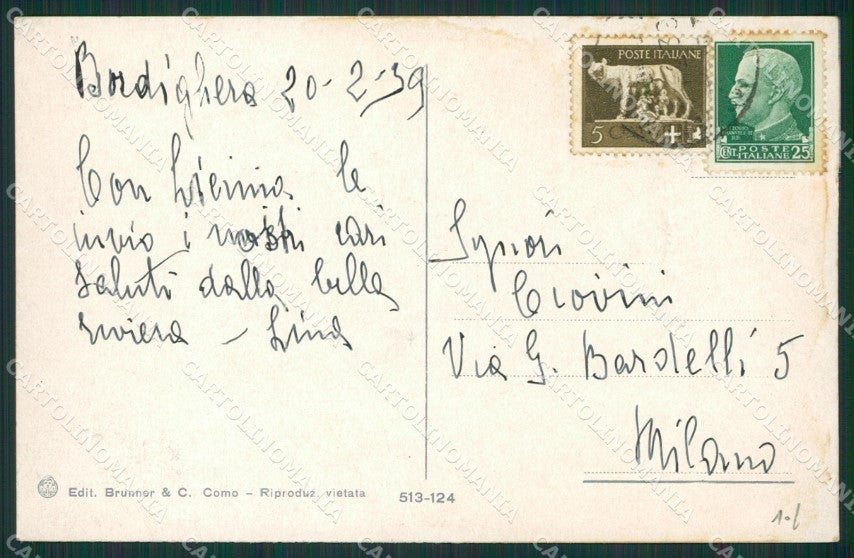 Bordighera 20-2-39
Con
le
invio i nostri cari
saluti dalla bella
riviera - Lina
POSTE ITALIANE
5
CENT. POSTE ITALIANE 25
Signori
Via G. Bardelli 5
Milano
Edit. Brunner & C. Como - Riproduz. vietata
513-124
CARTOLINOMANIA